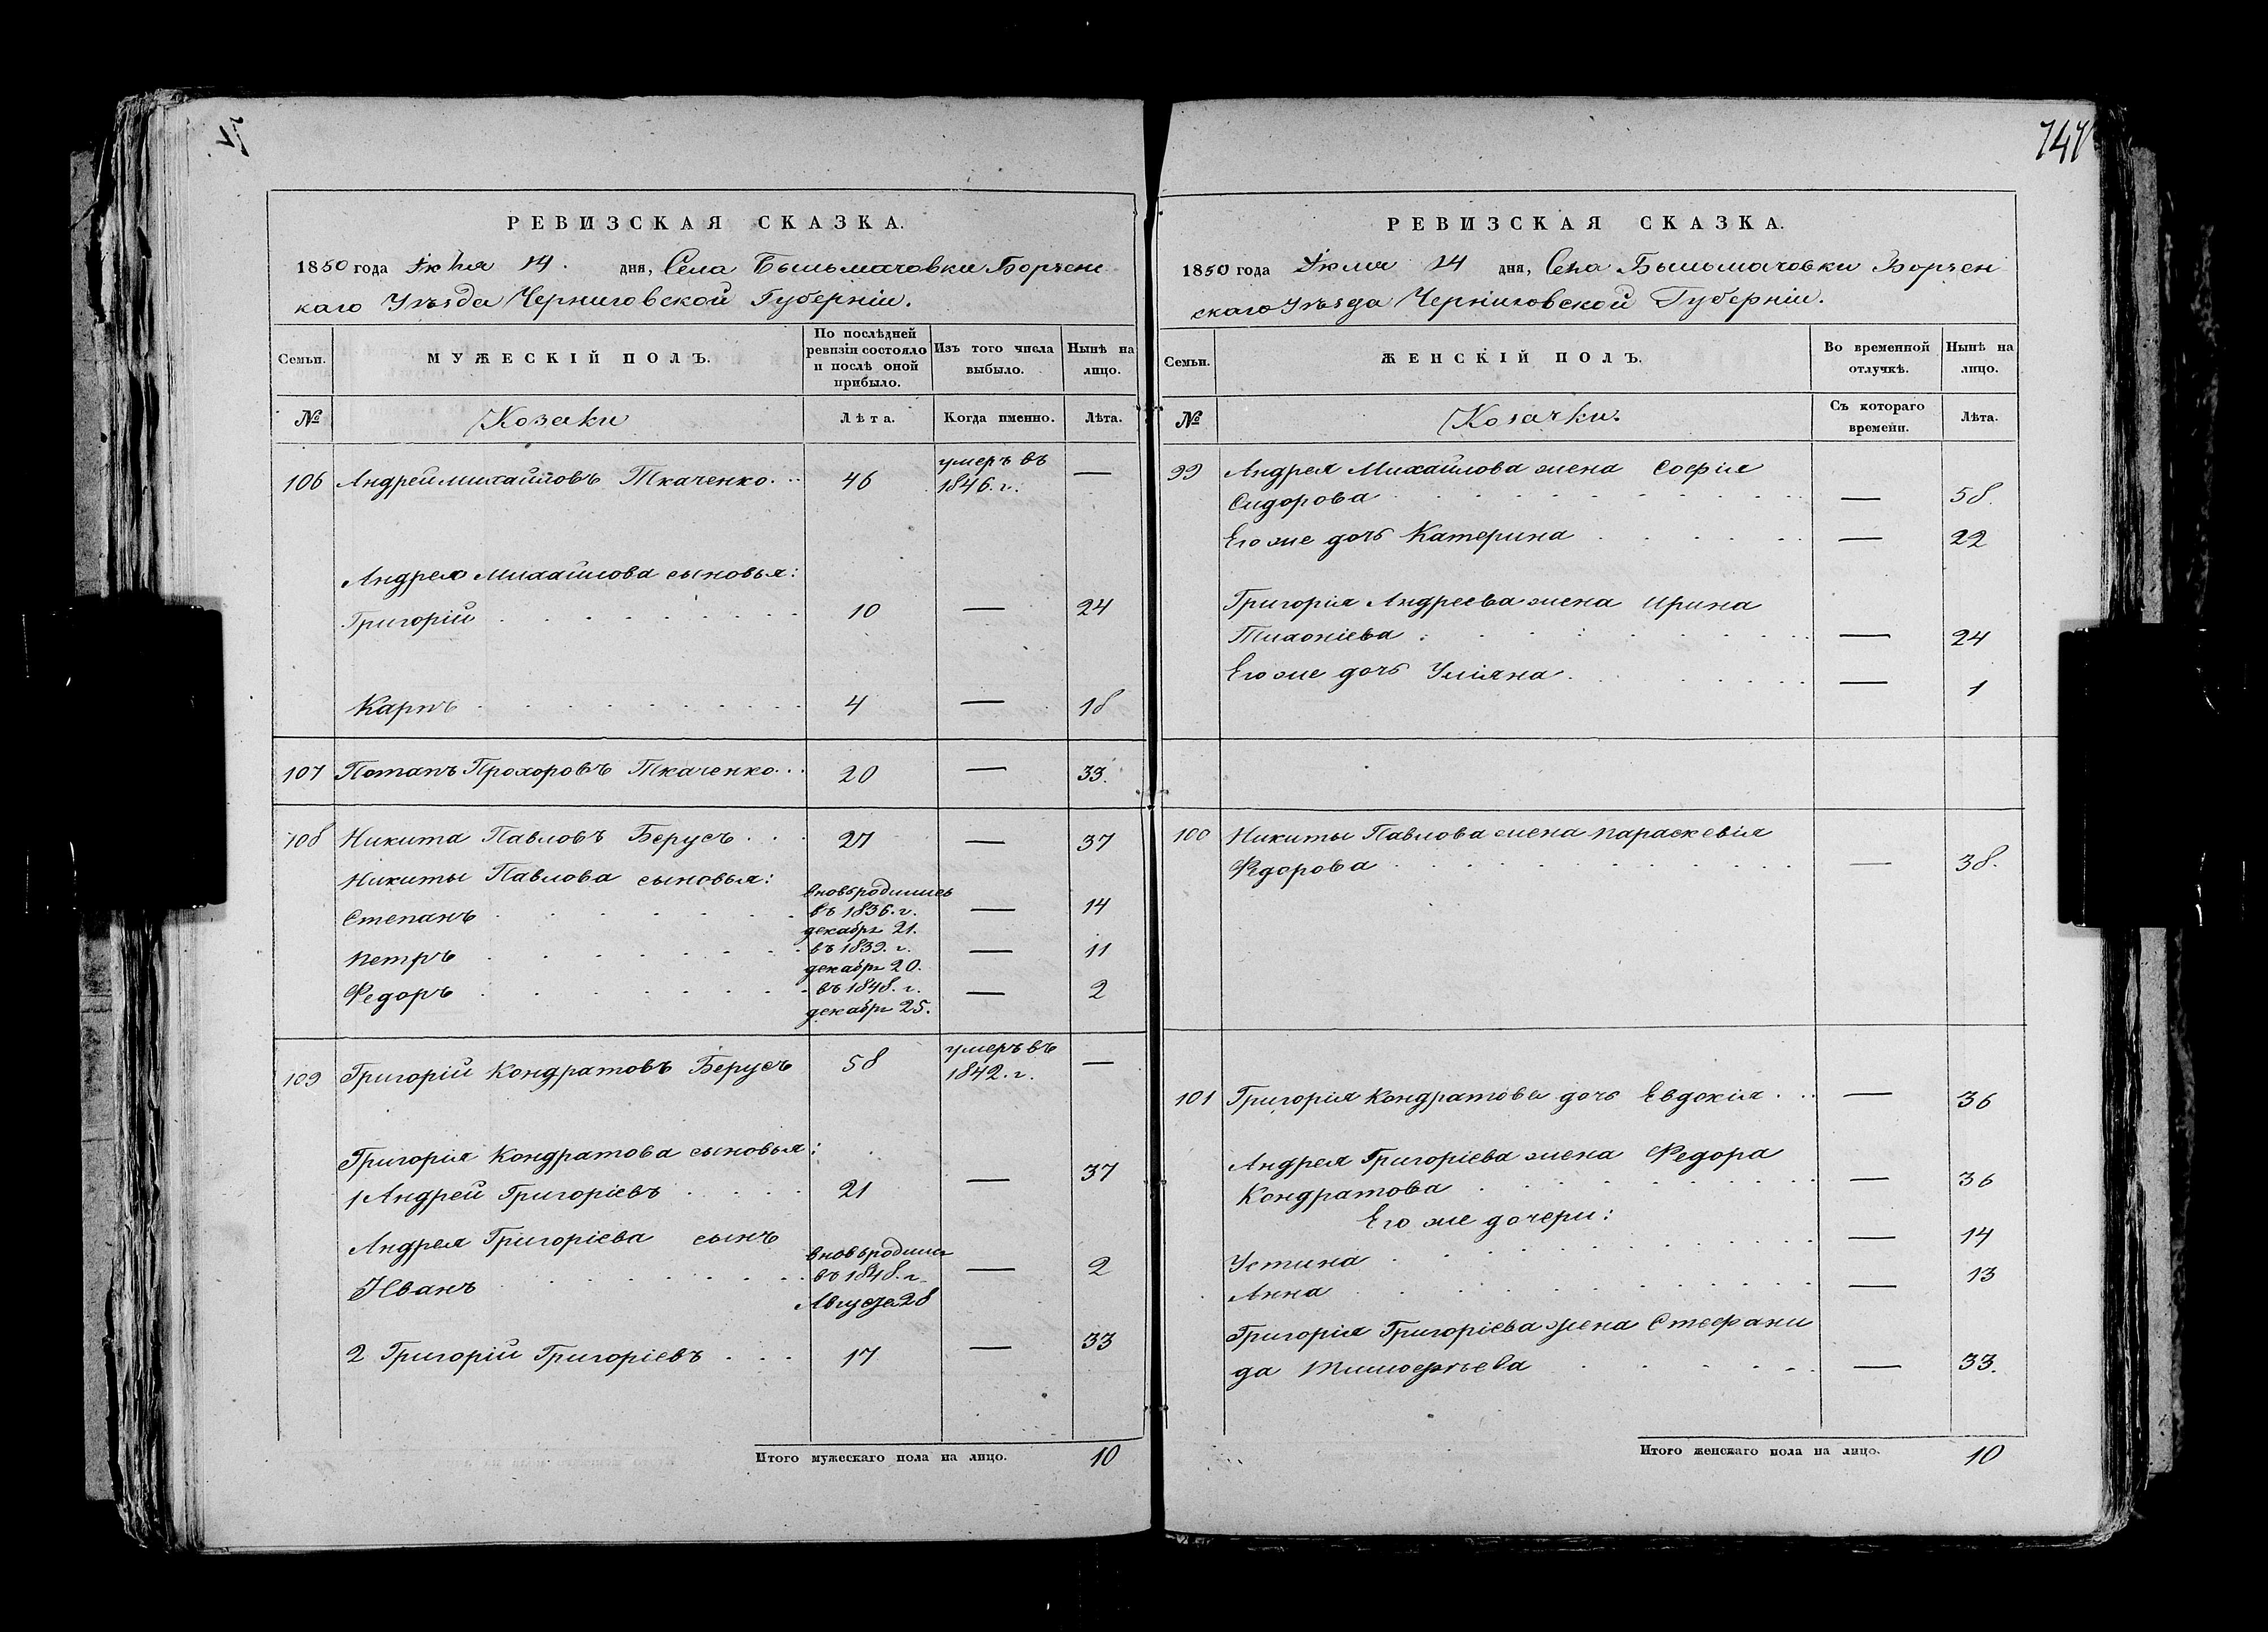 747
РЕВИЗСКАЯ СКАЗКА.
1850 года Іюня 14. дня, Села Бышьмачовки Борзенс
каго Уѣзда Черниговской Губерніи.
Семьи. МУЖЕСКІЙ ПОЛЪ. По послѣдней ревизіи состояло и послѣ оной прибыло. Изъ того числа выбыло. Нынѣ на лицо.
№ Козаки Лѣта. Когда именно. Лѣта.
106 Андрей Михайловъ Ткаченко. 46 умеръ въ 1846. г. —
Андрея Михайлова сыновья:
Григорій 10 — 24
Карпъ 4 — 18
107 Потапъ Прохоровъ Ткаченко 20 — 33.
108 Никита Павловъ Берусъ 27 — 37
Никиты Павлова сыновья:
вновьродились
Степанъ въ 1836. г. — 14
декабря 21.
Петръ въ 1839. г. — 11
декабря 20.
Федоръ въ 1848. г. — 2
декабря 25.
109 Григорій Кондратовъ Берусъ 58 умеръ въ 1842. г. —
Григорія Кондратова сыновья:
1 Андрей Григоріевъ 21 — 37
Андрея Григоріева сынъ
вновьродился
Иванъ въ 1848. г. — 2
Августа 28
2 Григорій Григоріевъ 17 — 33
Итого мужескаго пола на лицо. 10
РЕВИЗСКАЯ СКАЗКА.
1850 года 14 дня, Села Бышьмачовки Борзен
скаго Уѣзда Черниговской Губерніи.
Семьи. ЖЕНСКІЙ ПОЛЪ. Во временной отлучкѣ. Нынѣ на лицо.
№ Козачки. Съ котораго времени. Лѣта.
99 Андрея Михайлова жена Софія
Сидорова — 58.
Его же дочь Катерина — 22
Григорія Андреева жена Ирина
Тихоніева — 24
Его же дочь Уліяна — 1
100 Никиты Павлова жена Параскевія
Федорова — 38.
101 Григорія Кондратова дочь Евдокія — 36
Андрея Григоріева жена Федора
Кондратова — 36
Его же дочери:
Устина — 14
Анна — 13
Григорія Григоріева жена Стефани
да Тимофѣева — 33.
Итого женскаго пола на лицо. 10